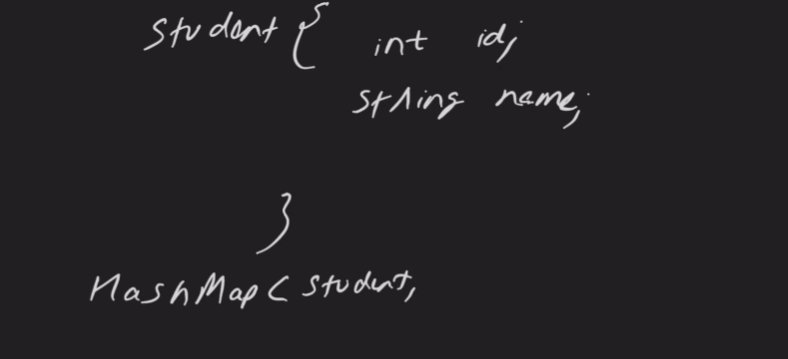 Student { int id;
String name;
}
HashMap < Student,